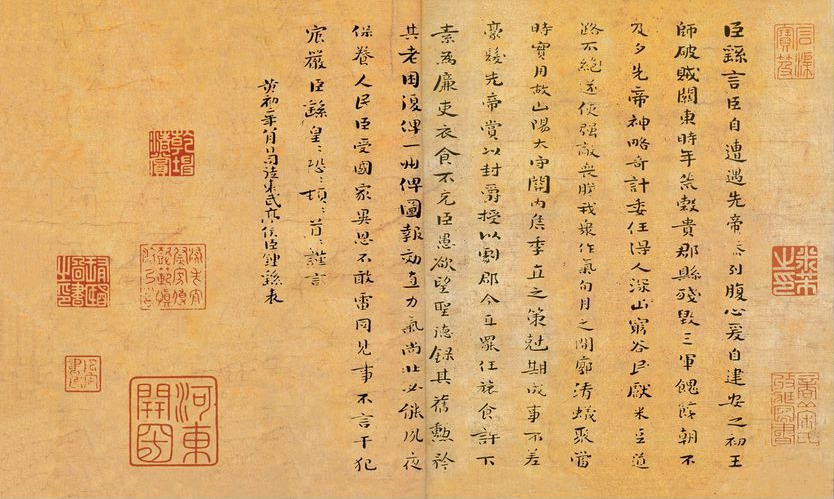 臣繇言臣自遭遇先帝忝列腹心爰自建安之初王
師破賊關東時年荒穀貴郡縣殘毀三軍餽饟朝不
及夕先帝神略奇計委任得人深山窮谷民獻米豆道
路不絕遂使强敵喪膽我衆作氣旬月之間廓清蟻聚當
時實用故山陽太守關內侯季直之策尅期成事不差
豪髮先帝賞以封爵授以劇郡今直罷任旅食許下
素爲廉吏衣食不充臣愚欲望聖德錄其舊勲矜
其老困復俾一州俾圖報効直力氣尚壯必能夙夜
保養人民臣受國家異恩不敢雷同見事不言干犯
宸嚴臣繇皇〻恐〻頓〻首〻謹言
黃初二年八月日司徒東武亭侯臣鍾繇表
乾隆
河東
開國
米芾
之印